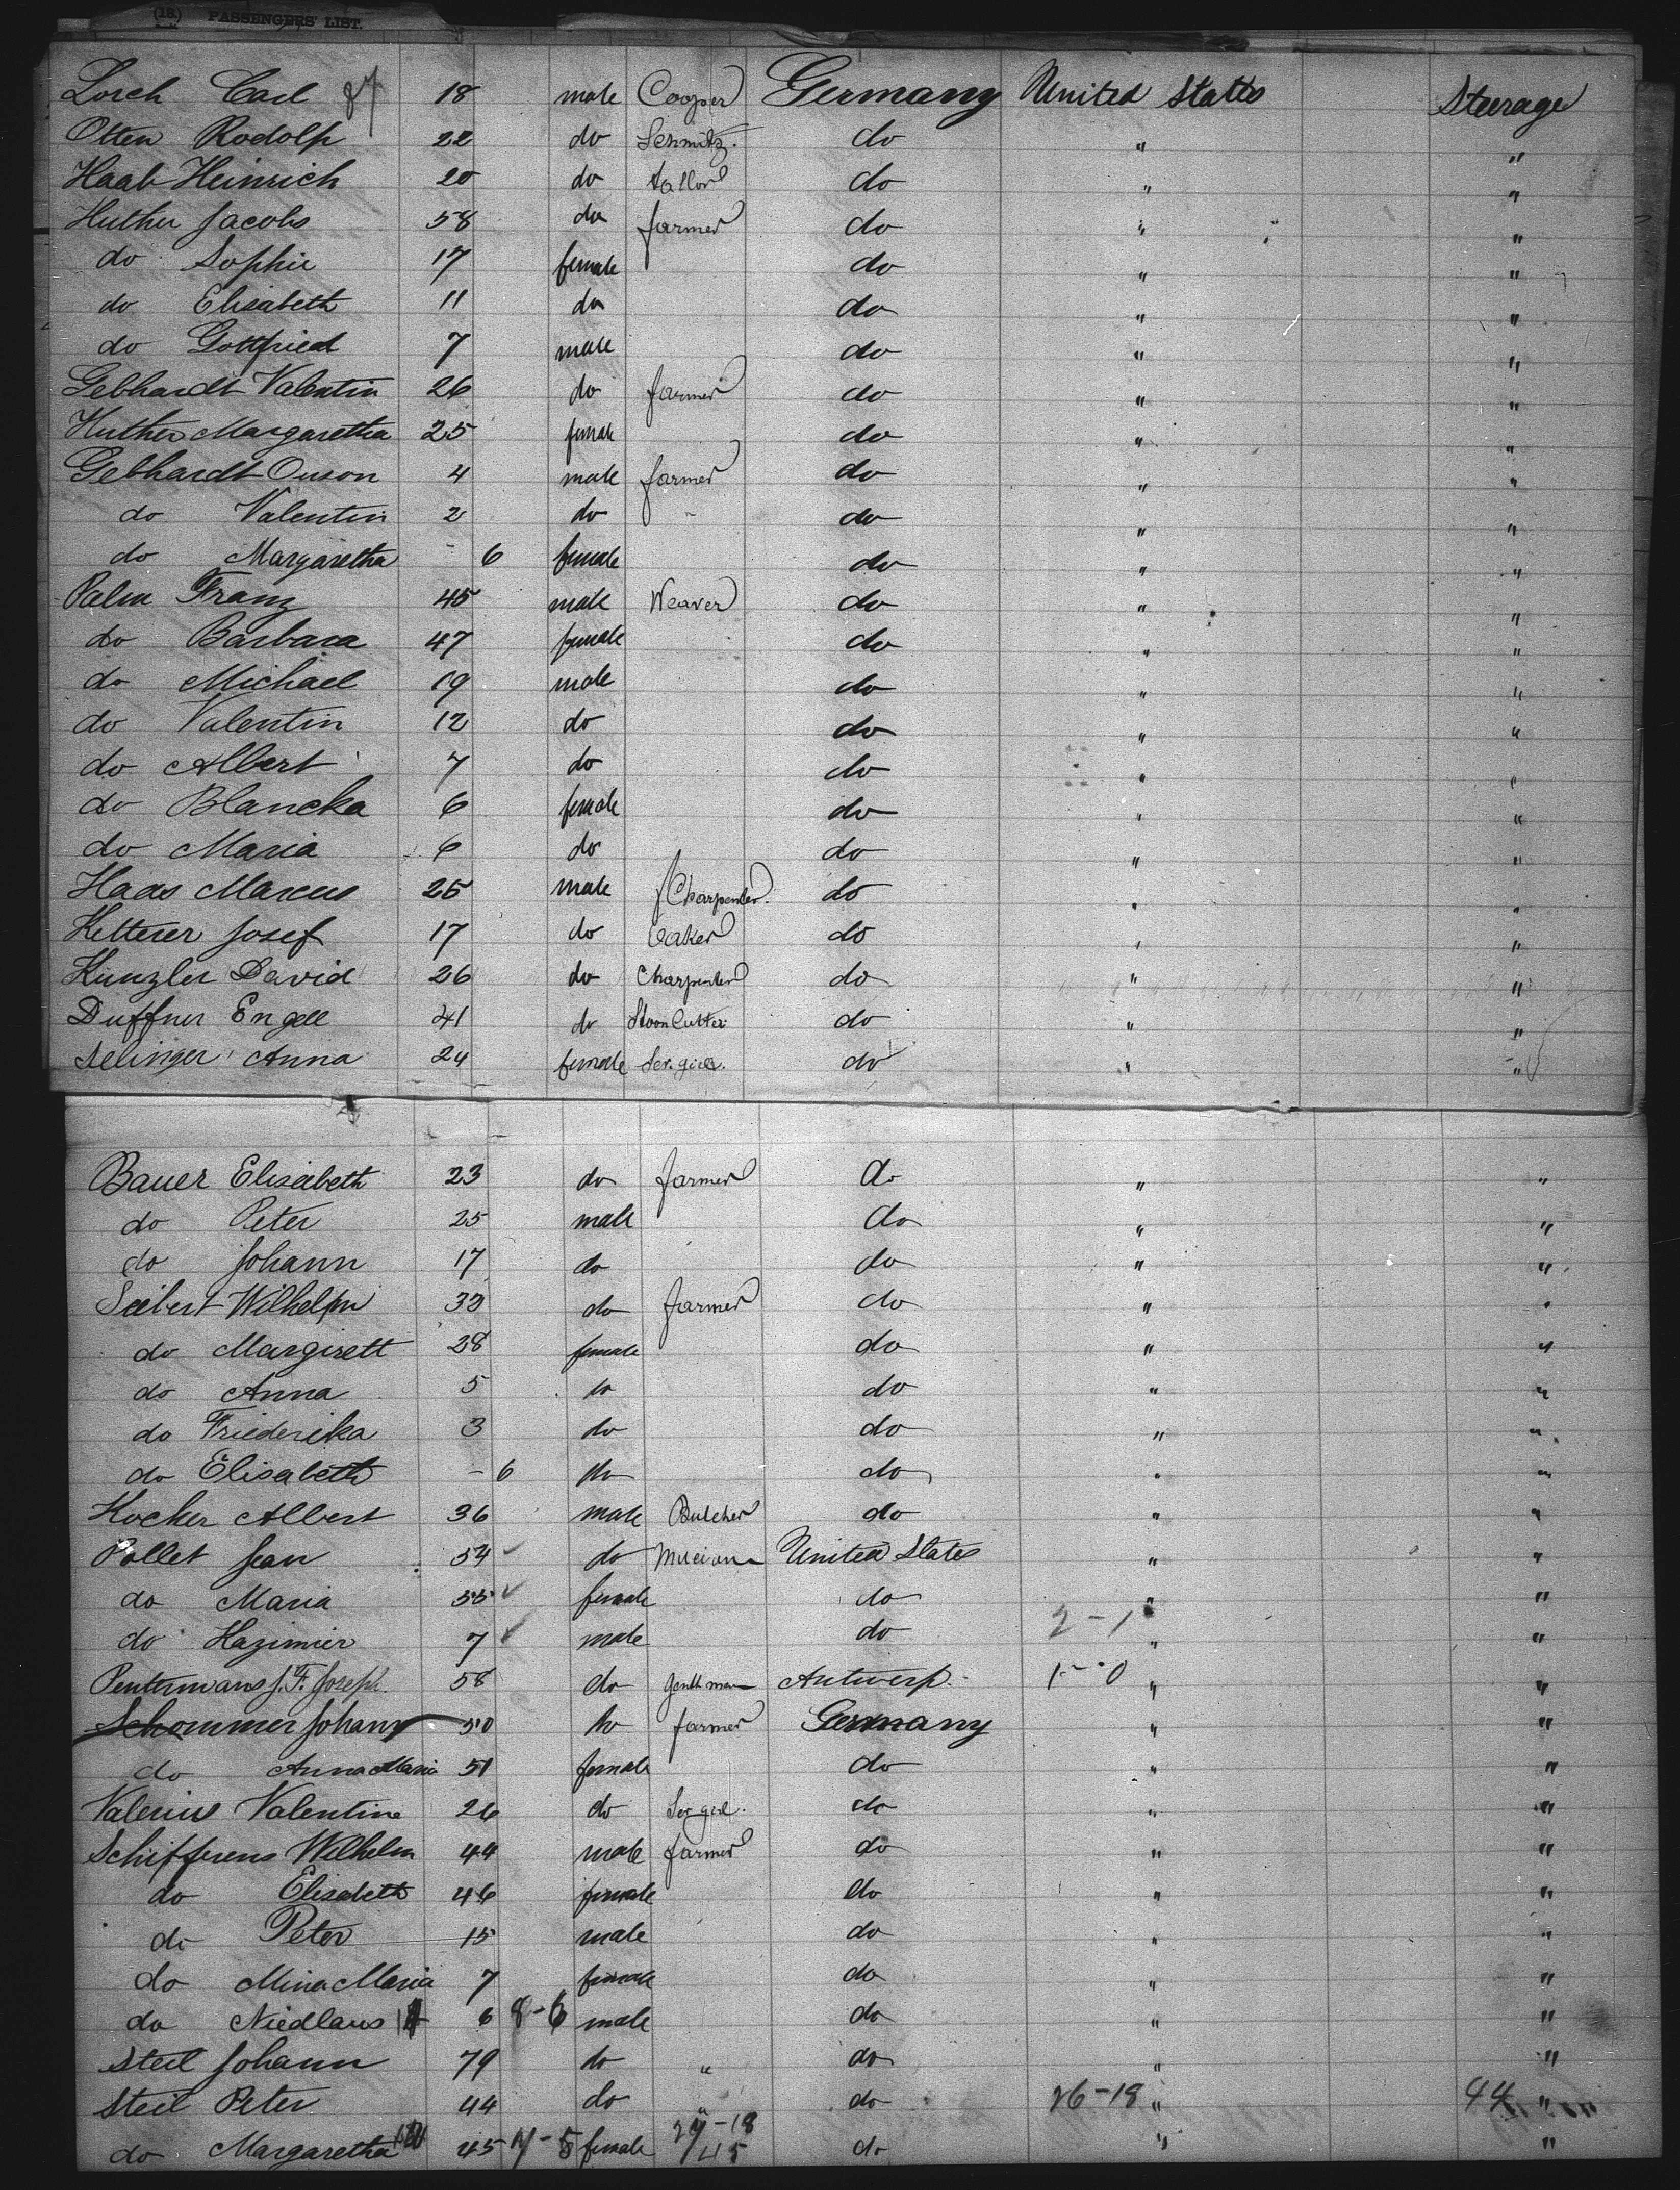 (18.) PASSENGERS' LIST.
Lorch Carl 87 18 male Cooper Germany United States Steerage
Otten Rodolf 22 do Schmitz. do " "
Haab Heinrich 20 do tallor do " "
Huther Jacobs 58 do farmer do " "
do Sophie 17 female do " "
do Elisabeth 11 do do " "
do Gottfried 7 male do " "
Gebhardt Valentin 26 do farmer do " "
Huther Margaretha 25 female do " "
Gebhardt Ouson 4 male farmer do " "
do Valentin 2 do do " "
do Margaretha - 6 female do " "
Palm Franz 45 male Weaver do " "
do Barbara 47 female do " "
do Michael 19 male do " "
do Valentin 12 do do " "
do Albert 7 do do " "
do Blancka 6 female do " "
do Maria 6 do do " "
Haas Marcus 25 male Charpenter. do " "
Ketterer Josef 17 do baker do " "
Kunzler David 26 do Charpenter do " "
Duffner Engell 41 do Stoon Cutter do " "
Selinger Anna 24 female Ser. girl. do " "
Bauer Elisabeth 23 do farmer do " "
do Peter 25 male do " "
do Johann 17 do do " "
Seibert Wilhelm 33 do farmer do " "
do Margirett 28 female do " "
do Anna 5 do do " "
do Friederika 3 do do " "
do Elisabeth - 6 do do " "
Kocker Albert 36 male Butcher do " "
Pollet Jean 54 do Mucian United States " "
do Maria 55 female do " "
do Hazimier 7 male do 2-1 " "
Pentermans J. F. Joseph. 58 do Gentlman Antwerp. 1-0 " "
Schommer Johann 50 do farmer Germany " "
do Anna Maria 51 female do " "
Valerius Valentine 26 do Ser girl. do " "
Schifferens Wilhelm 44 male farmer do " "
do Elisabeth 46 female do " "
do Peter 15 male do " "
do Mina Maria 7 female do " "
do Niedlaus 6 8-6 male do " "
Steil Johann 79 do " do " "
Steil Peter 44 do " do 26-18 " 44 "
do Margaretha 45 female 27-18 45 do " "